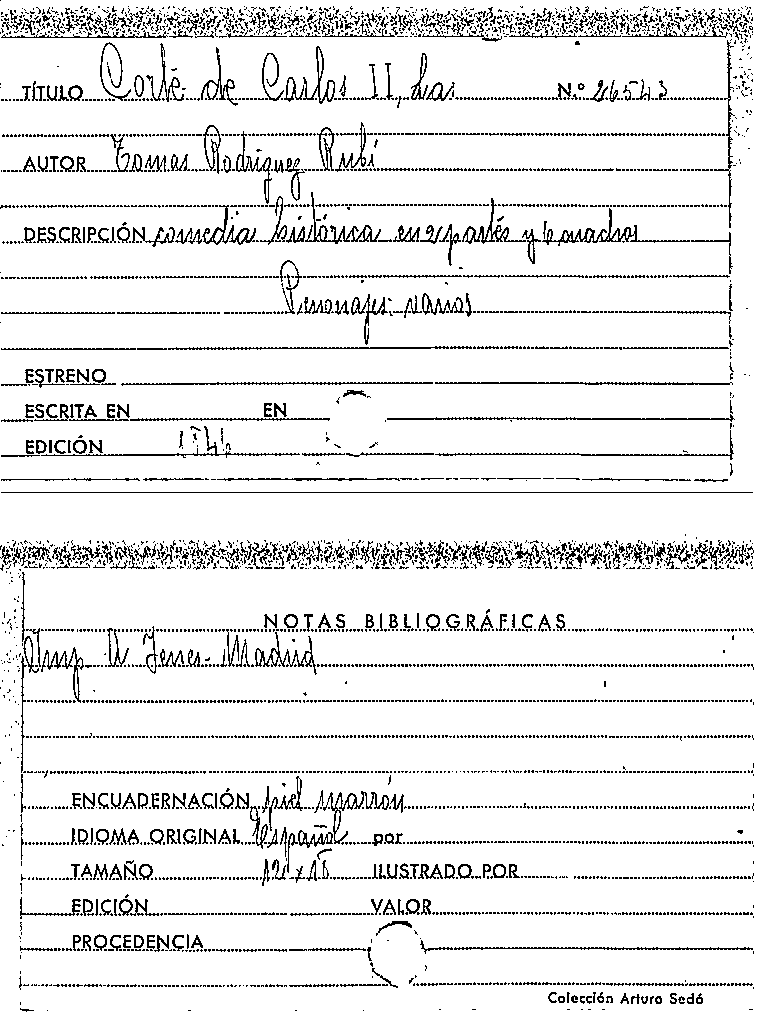 TÍTULO Corte de Carlos II, Las N.º 26543
AUTOR Tomas Rodriguez Rubí
DESCRIPCIÓN comedia histórica en 2 partes y 6 cuadros
Personajes: varios
ESTRENO
ESCRITA EN EN
EDICIÓN 1846
NOTAS BIBLIOGRÁFICAS
Imp. A Madrid
ENCUADERNACIÓN piel marrón
IDIOMA ORIGINAL Español por
TAMAÑO ILUSTRADO POR
EDICIÓN VALOR
PROCEDENCIA
Colección Arturo Sedó